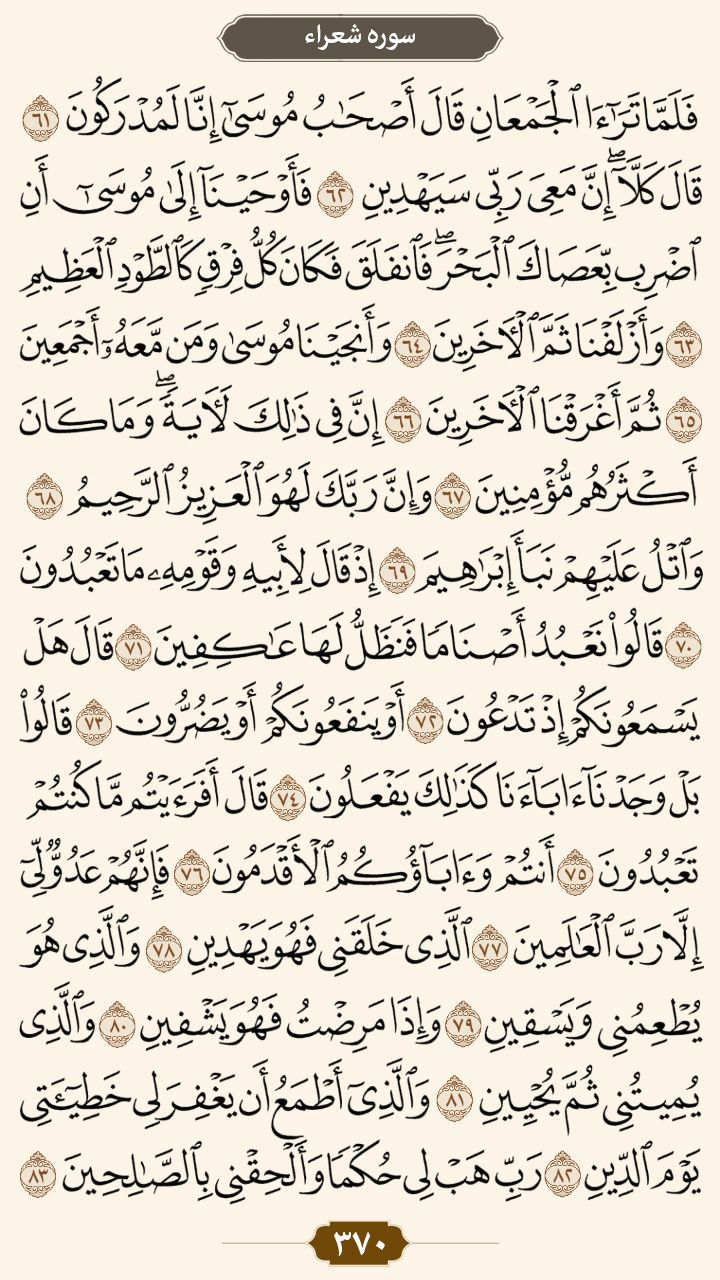 سوره شعراء
فَلَمَّا تَرَٰٓءَا ٱلْجَمْعَانِ قَالَ أَصْحَٰبُ مُوسَىٰٓ إِنَّا لَمُدْرَكُونَ ٦١
قَالَ كَلَّآ ۖ إِنَّ مَعِىَ رَبِّى سَيَهْدِينِ ٦٢ فَأَوْحَيْنَآ إِلَىٰ مُوسَىٰٓ أَنِ
ٱضْرِب بِّعَصَاكَ ٱلْبَحْرَ ۖ فَٱنفَلَقَ فَكَانَ كُلُّ فِرْقٍ كَٱلطَّوْدِ ٱلْعَظِيمِ
٦٣ وَأَزْلَفْنَا ثَمَّ ٱلْأَخَرِينَ ٦٤ وَأَنجَيْنَا مُوسَىٰ وَمَن مَّعَهُۥٓ أَجْمَعِينَ
٦٥ ثُمَّ أَغْرَقْنَا ٱلْأَخَرِينَ ٦٦ إِنَّ فِى ذَٰلِكَ لَأَيَةً ۖ وَمَا كَانَ
أَكْثَرُهُم مُّؤْمِنِينَ ٦٧ وَإِنَّ رَبَّكَ لَهُوَ ٱلْعَزِيزُ ٱلرَّحِيمُ ٦٨
وَٱتْلُ عَلَيْهِمْ نَبَأَ إِبْرَٰهِيمَ ٦٩ إِذْ قَالَ لِأَبِيهِ وَقَوْمِهِۦ مَا تَعْبُدُونَ
٧٠ قَالُوا۟ نَعْبُدُ أَصْنَامًا فَنَظَلُّ لَهَا عَٰكِفِينَ ٧١ قَالَ هَلْ
يَسْمَعُونَكُمْ إِذْ تَدْعُونَ ٧٢ أَوْ يَنفَعُونَكُمْ أَوْ يَضُرُّونَ ٧٣ قَالُوا۟
بَلْ وَجَدْنَآ ءَابَآءَنَا كَذَٰلِكَ يَفْعَلُونَ ٧٤ قَالَ أَفَرَءَيْتُم مَّا كُنتُمْ
تَعْبُدُونَ ٧٥ أَنتُمْ وَءَابَآؤُكُمُ ٱلْأَقْدَمُونَ ٧٦ فَإِنَّهُمْ عَدُوٌّ لِّىٓ
إِلَّا رَبَّ ٱلْعَٰلَمِينَ ٧٧ ٱلَّذِى خَلَقَنِى فَهُوَ يَهْدِينِ ٧٨ وَٱلَّذِى هُوَ
يُطْعِمُنِى وَيَسْقِينِ ٧٩ وَإِذَا مَرِضْتُ فَهُوَ يَشْفِينِ ٨٠ وَٱلَّذِى
يُمِيتُنِى ثُمَّ يُحْيِينِ ٨١ وَٱلَّذِىٓ أَطْمَعُ أَن يَغْفِرَ لِى خَطِيٓـَٔتِى
يَوْمَ ٱلدِّينِ ٨٢ رَبِّ هَبْ لِى حُكْمًا وَأَلْحِقْنِى بِٱلصَّٰلِحِينَ ٨٣
٣٧٠